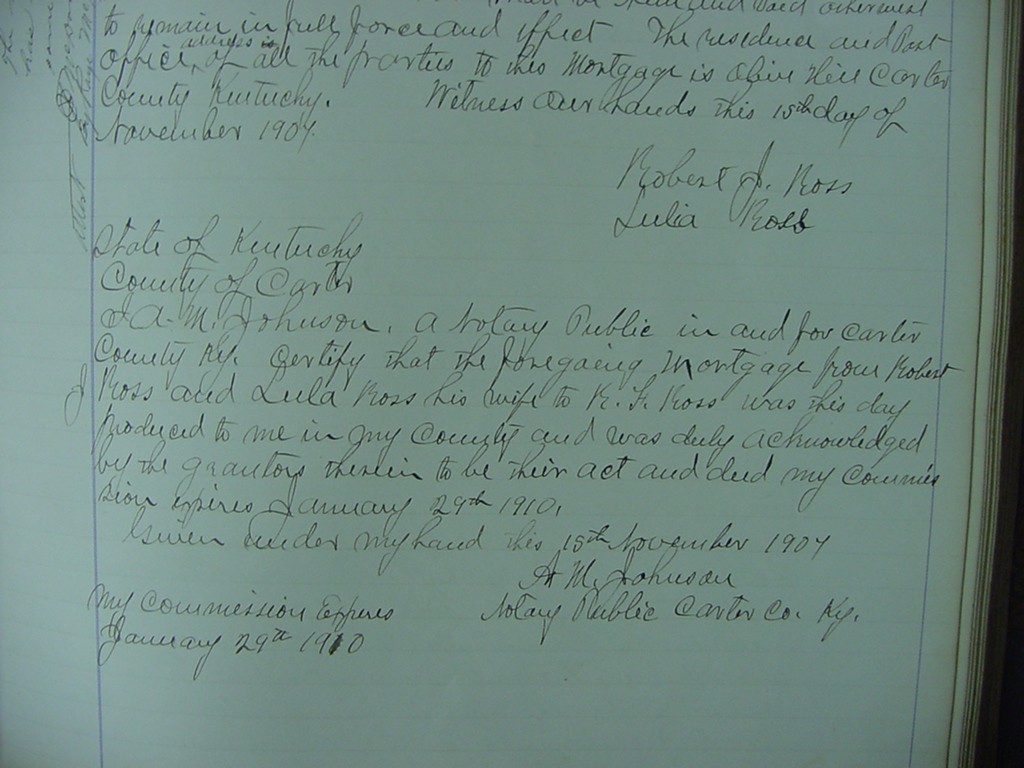 and said otherwise
to remain in full force and effect The residence and Post
address is
Office, of all the parties to this Mortgage is Olive Hill Carter
County Kentucky. Witness our hands this 15th day of
November 1907.
Robert J. Ross
Lulia Ross
State of Kentucky
County of Carter
I A. M. Johnson, a Notary Public in and for Carter
County Ky. Certify that the foregoing Mortgage from Robert
J Ross and Lula Ross his wife to R. F. Ross was this day
produced to me in my County and was duly acknowledged
by the grantors therein to be their act and deed my Commis
sion expires January 29th 1910.
Given under my hand this 15th November 1907
A M. Johnson
My Commission Expires Notary Public Carter Co. Ky.
January 29th 1910
Attest